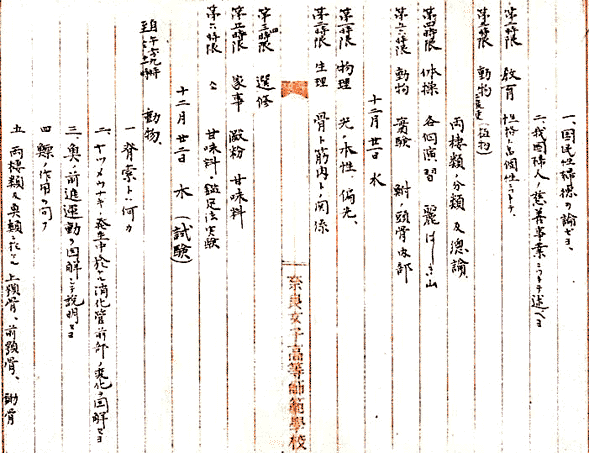 一、国民性ヲ論ゼヨ、
二、我国婦人ノ慈善事業ニツキテ述ベヨ
第二時限 教育 性格ト品個性ニツキテ、
第三時限 動物
両棲類ノ分類及總論、
第四時限 体操 各個演習
第五六時限 動物 實験 鮒ノ頭骨
十二月廿一日 水
第一時限 物理 光ノ本性、偏光、
第二時限 生理 骨ト筋肉トノ関係
第三四時限 選修
第五時限 家事 澱粉 甘味料
第六時限 〃 甘味料ノ鑑定法実験
十二月廿二日 木 (試験)
自午前九時
至 十二時
動物、
一、脊索トハ何カ
二、ヤツメウナギノ発生中於ケル消化管前部ノ変化ヲ図解セヨ
三、魚ノ前進運動ヲ図解シテ説明セヨ
四、鰾ノ作用ヲ問フ
五、両棲類及魚類ニ於ケル上顎骨、前顎骨、
奈良女子高等師範學校